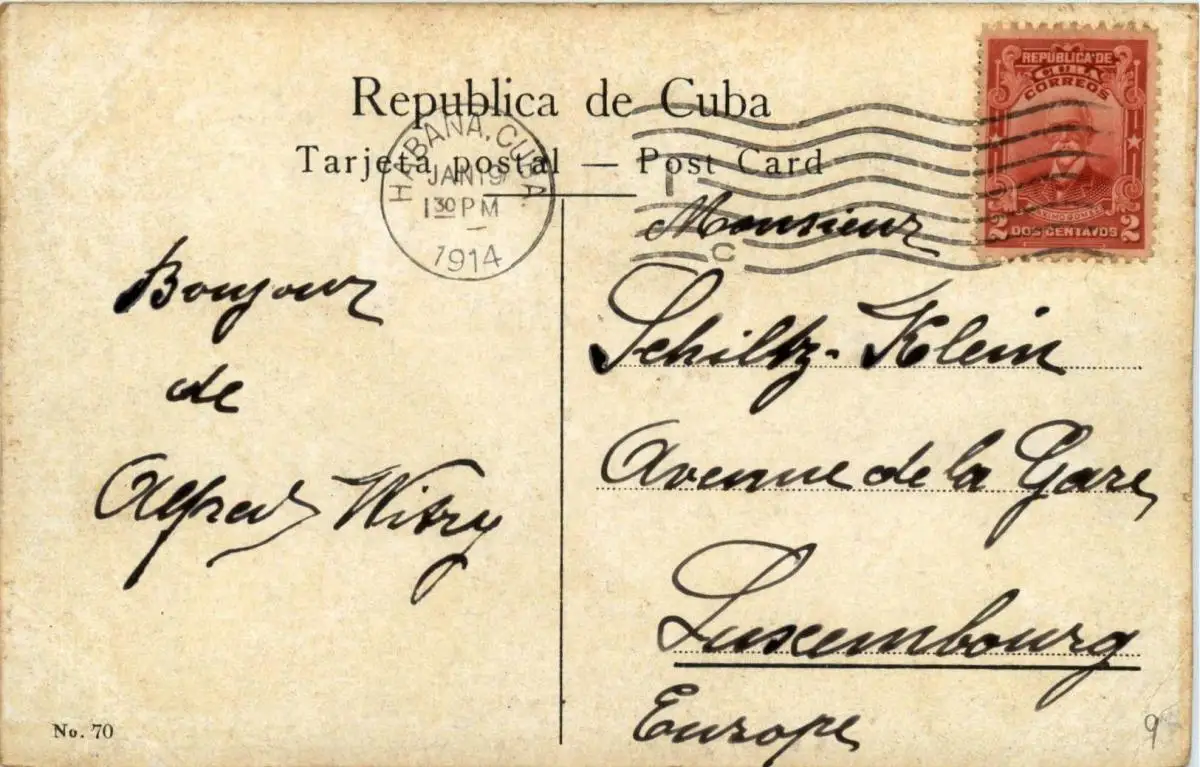 Republica de Cuba
Tarjeta postal — Post Card
HABANA, CUBA.
JAN 19
1 30 PM
1914
C
REPUBLICA DE
CUBA
CORREOS
MAXIMO GOMEZ
2 DOS CENTAVOS 2
Bonjour
de
Alfred Witry
Monsieur
Schiltz-Klein
Avenue de la Gare
Luxembourg
Europe
No. 70
9